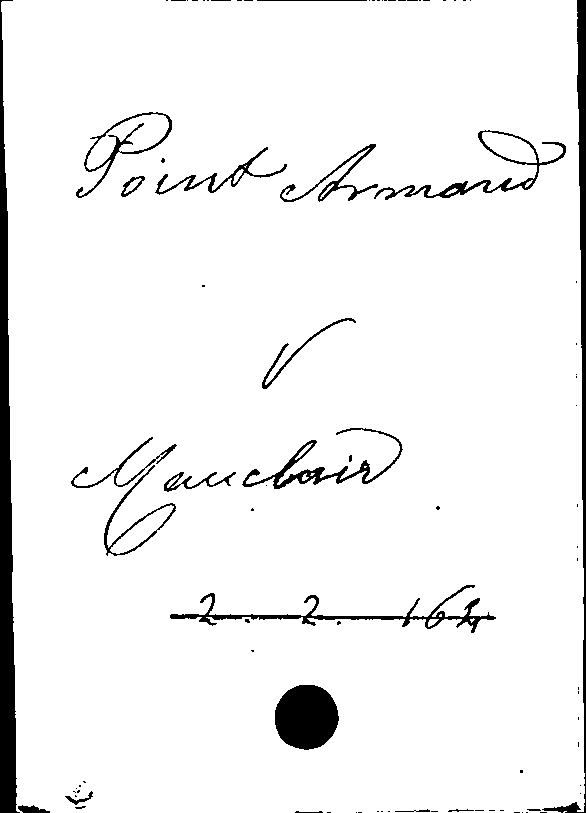 Point Armand
V
Mauclair
2. 2. 164